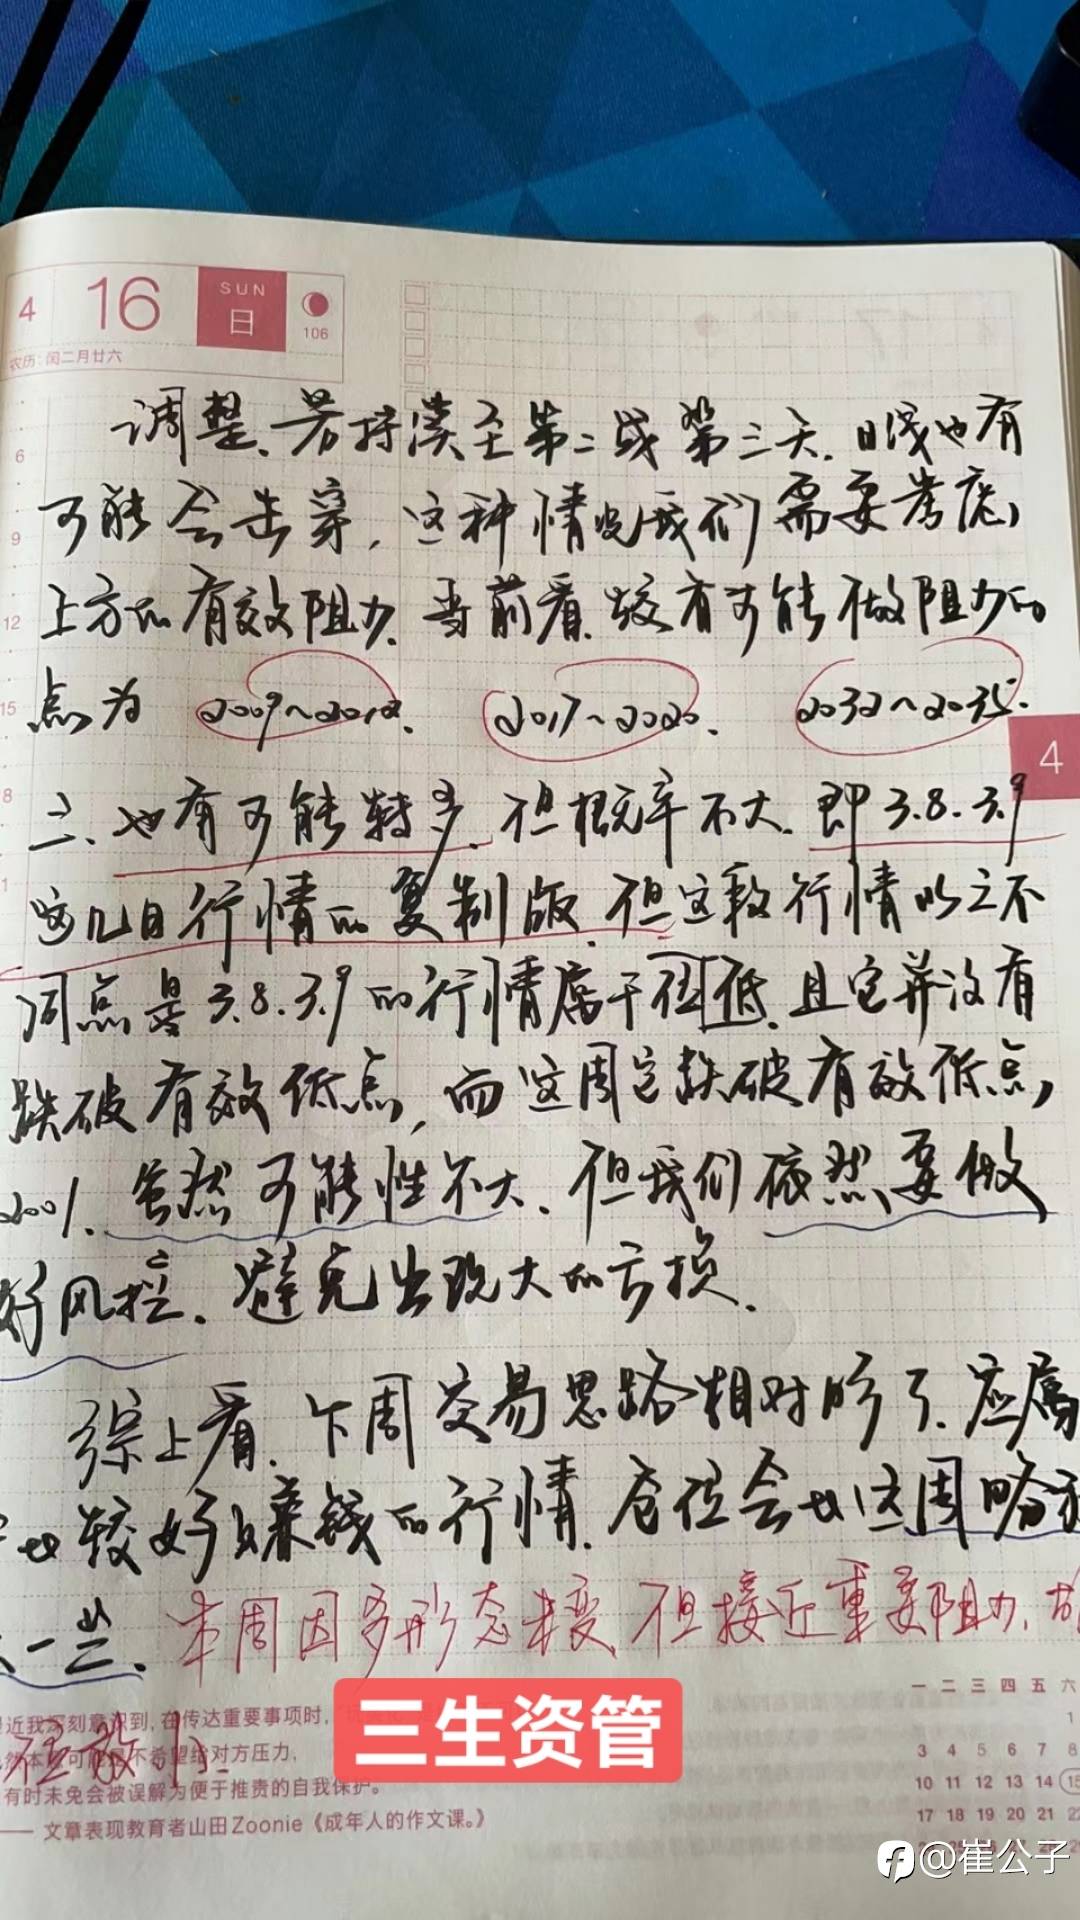 4 16 SUN 日 106
农历:闰二月廿六
调整、若持续至第二或第三天、日线也有
可能会击穿,这种情况我们需要考虑
上方的有效阻力、当前看、较有可能做阻力的
点为 2009~2012、 2017~2020、 2032~2035.
二、也有可能转多、但概率不大、即3.8、3.9
这几日行情的复制版、但这段行情的不
同点是3.8、3.9的行情属于回低、且它并没有
跌破有效低点,而这周它跌破有效低点,
2001、虽然可能性不大、但我们依然要做
好风控、避免出现大的亏损、
综上看、下周交易思路相对清晰了、应属
比较好赚钱的行情、仓位会比这周略
一些、本周因多形态未变、但接近重要阻力、故
位放小
近我深刻意识到,在传达重要事项时,
本 可能 不希望给对方压力,
有时未免会被误解为便于推责的自我保护。
—— 文章表现教育者山田Zoonie《成年人的作文课。》
三生资管
4
6
9
12
15
8
1
一 二 三 四 五 六
1
3 4 5 6 7 8
10 11 12 13 14 15
17 18 19 20 21 22
@崔公子